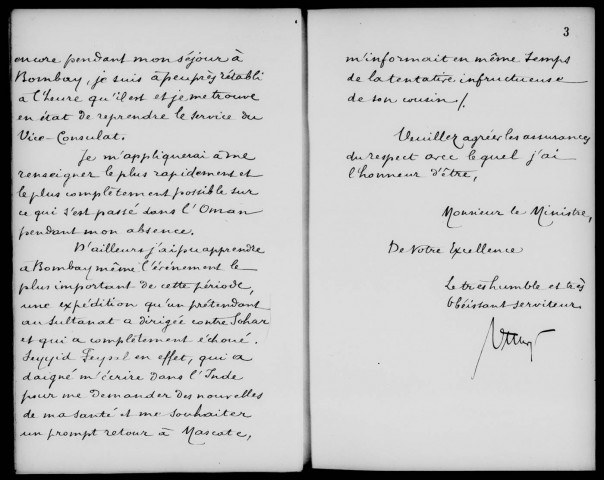 encore pendant mon séjour à
Bombay, je suis à peu près rétabli
à l'heure qu'il est et je me trouve
en état de reprendre le service du
Vice-Consulat.
Je m'appliquerai à me
renseigner le plus rapidement et
le plus complètement possible sur
ce qui s'est passé dans l'Oman
pendant mon absence.
D'ailleurs j'ai pu apprendre
à Bombay même l'événement le
plus important de cette période,
une expédition qu'un prétendant
au Sultanat a dirigée contre Sohar
et qui a complètement échoué.
Seyyid Feyssl en effet, qui a
daigné m'écrire dans l'Inde
pour me demander des nouvelles
de ma santé et me souhaiter
un prompt retour à Mascate,
3
m'informait en même temps
de la tentative infructueuse
de son cousin /.
Veuillez agréer les assurances
du respect avec lequel j'ai
l'honneur d'être,
Monsieur le Ministre,
De Votre Excellence
Le très humble et très
Obéissant serviteur